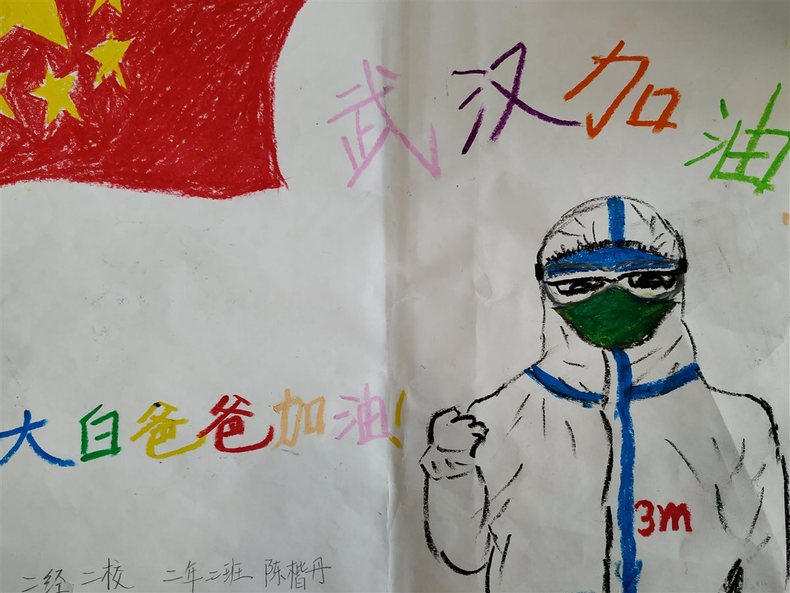 武汉加油
大白爸爸加油!
3M
二经二校 二年二班 陈楷丹